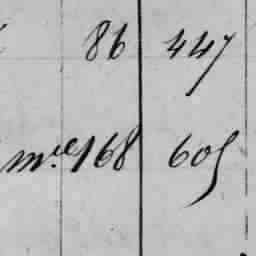 86 447
m.le 168 605